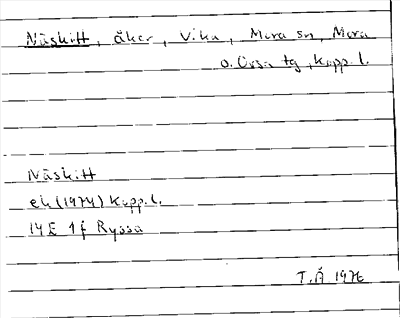 Näskitt, åker, Vika, Mora sn, Mora
o. Orsa tg, Kopp. l.
Näskitt
ek (1974) Kopp. l.
14E 1f Ryssa
T.Å 1976